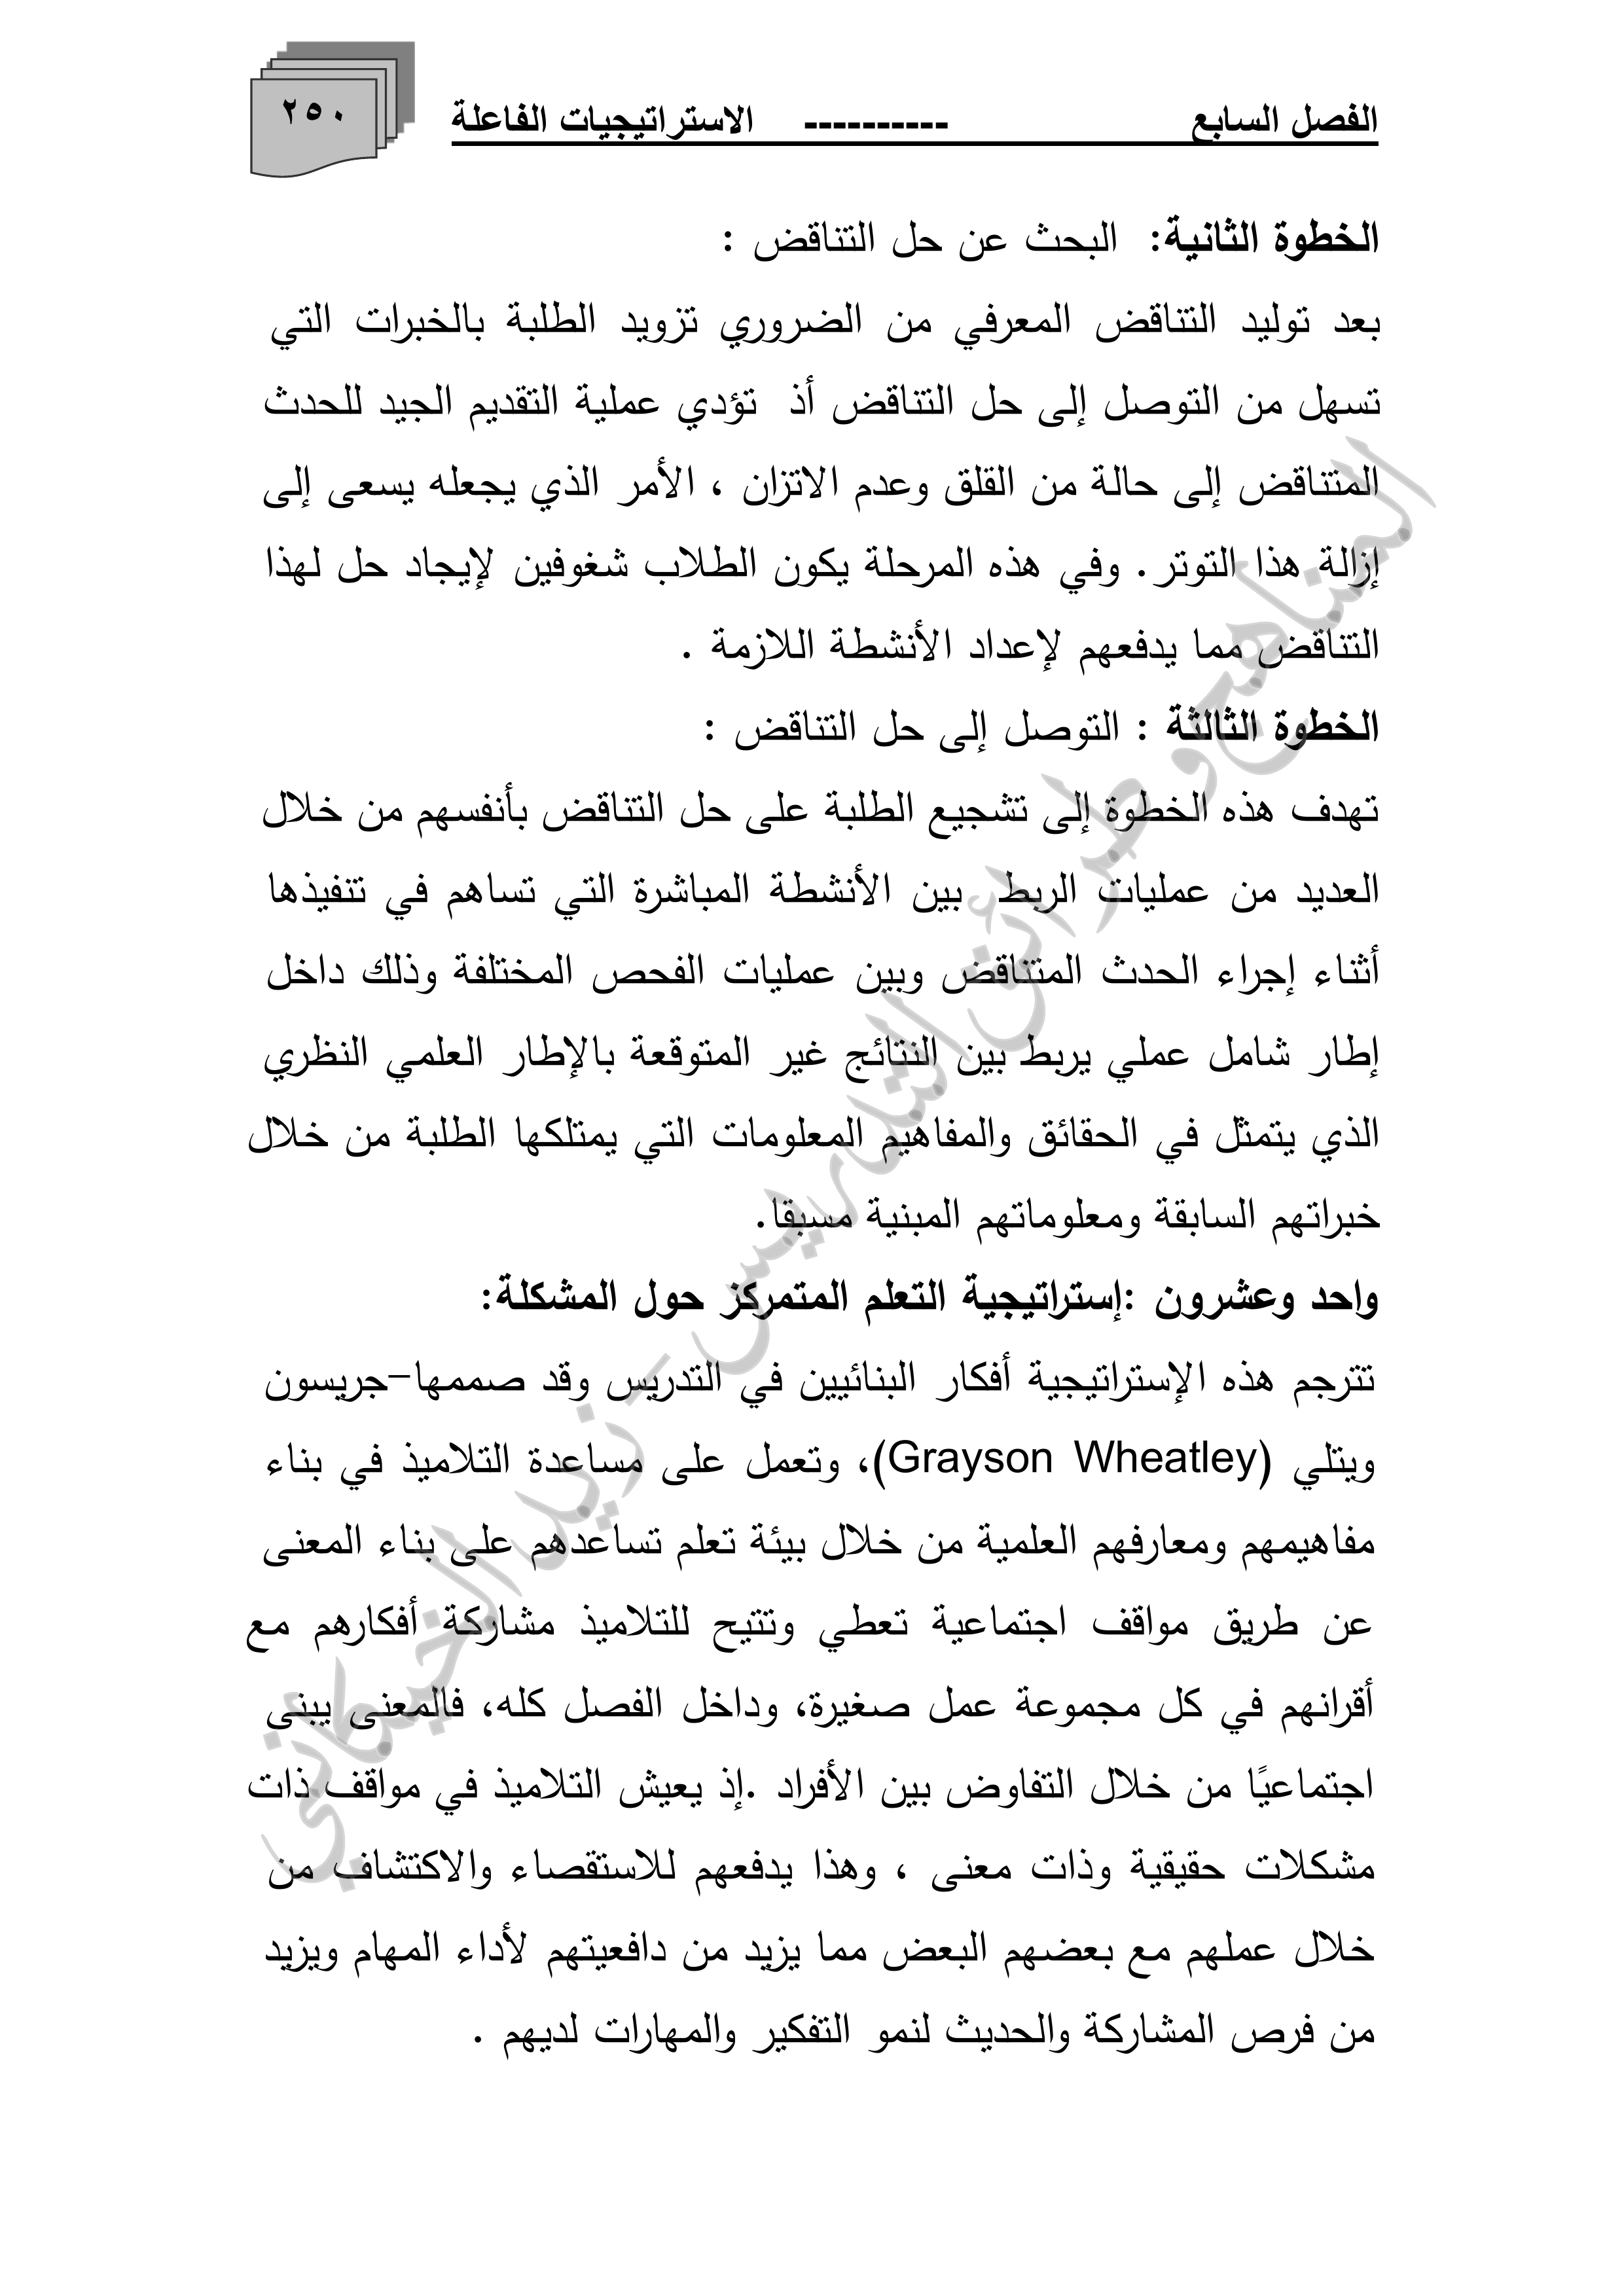 الفصل السابع ---------- الاستراتيجيات الفاعلة
٢٥٠
الخطوة الثانية: البحث عن حل التناقض :
بعد توليد التناقض المعرفي من الضروري تزويد الطلبة بالخبرات التي
تسهل من التوصل إلى حل التناقض أذ تؤدي عملية التقديم الجيد للحدث
المتناقض إلى حالة من القلق وعدم الاتزان ، الأمر الذي يجعله يسعى إلى
إزالة هذا التوتر. وفي هذه المرحلة يكون الطلاب شغوفين لإيجاد حل لهذا
التناقض مما يدفعهم لإعداد الأنشطة اللازمة .
الخطوة الثالثة : التوصل إلى حل التناقض :
تهدف هذه الخطوة إلى تشجيع الطلبة على حل التناقض بأنفسهم من خلال
العديد من عمليات الربط بين الأنشطة المباشرة التي تساهم في تنفيذها
أثناء إجراء الحدث المتناقض وبين عمليات الفحص المختلفة وذلك داخل
إطار شامل عملي يربط بين النتائج غير المتوقعة بالإطار العلمي النظري
الذي يتمثل في الحقائق والمفاهيم المعلومات التي يمتلكها الطلبة من خلال
خبراتهم السابقة ومعلوماتهم المبنية مسبقا.
واحد وعشرون :إستراتيجية التعلم المتمركز حول المشكلة:
تترجم هذه الإستراتيجية أفكار البنائيين في التدريس وقد صممها–جريسون
ويتلي (Grayson Wheatley)، وتعمل على مساعدة التلاميذ في بناء
مفاهيمهم ومعارفهم العلمية من خلال بيئة تعلم تساعدهم على بناء المعنى
عن طريق مواقف اجتماعية تعطي وتتيح للتلاميذ مشاركة أفكارهم مع
أقرانهم في كل مجموعة عمل صغيرة، وداخل الفصل كله، فالمعنى يبنى
اجتماعيًا من خلال التفاوض بين الأفراد .إذ يعيش التلاميذ في مواقف ذات
مشكلات حقيقية وذات معنى ، وهذا يدفعهم للاستقصاء والاكتشاف من
خلال عملهم مع بعضهم البعض مما يزيد من دافعيتهم لأداء المهام ويزيد
من فرص المشاركة والحديث لنمو التفكير والمهارات لديهم .
المناهج وطرائق التدريس - زيد الخيكاني